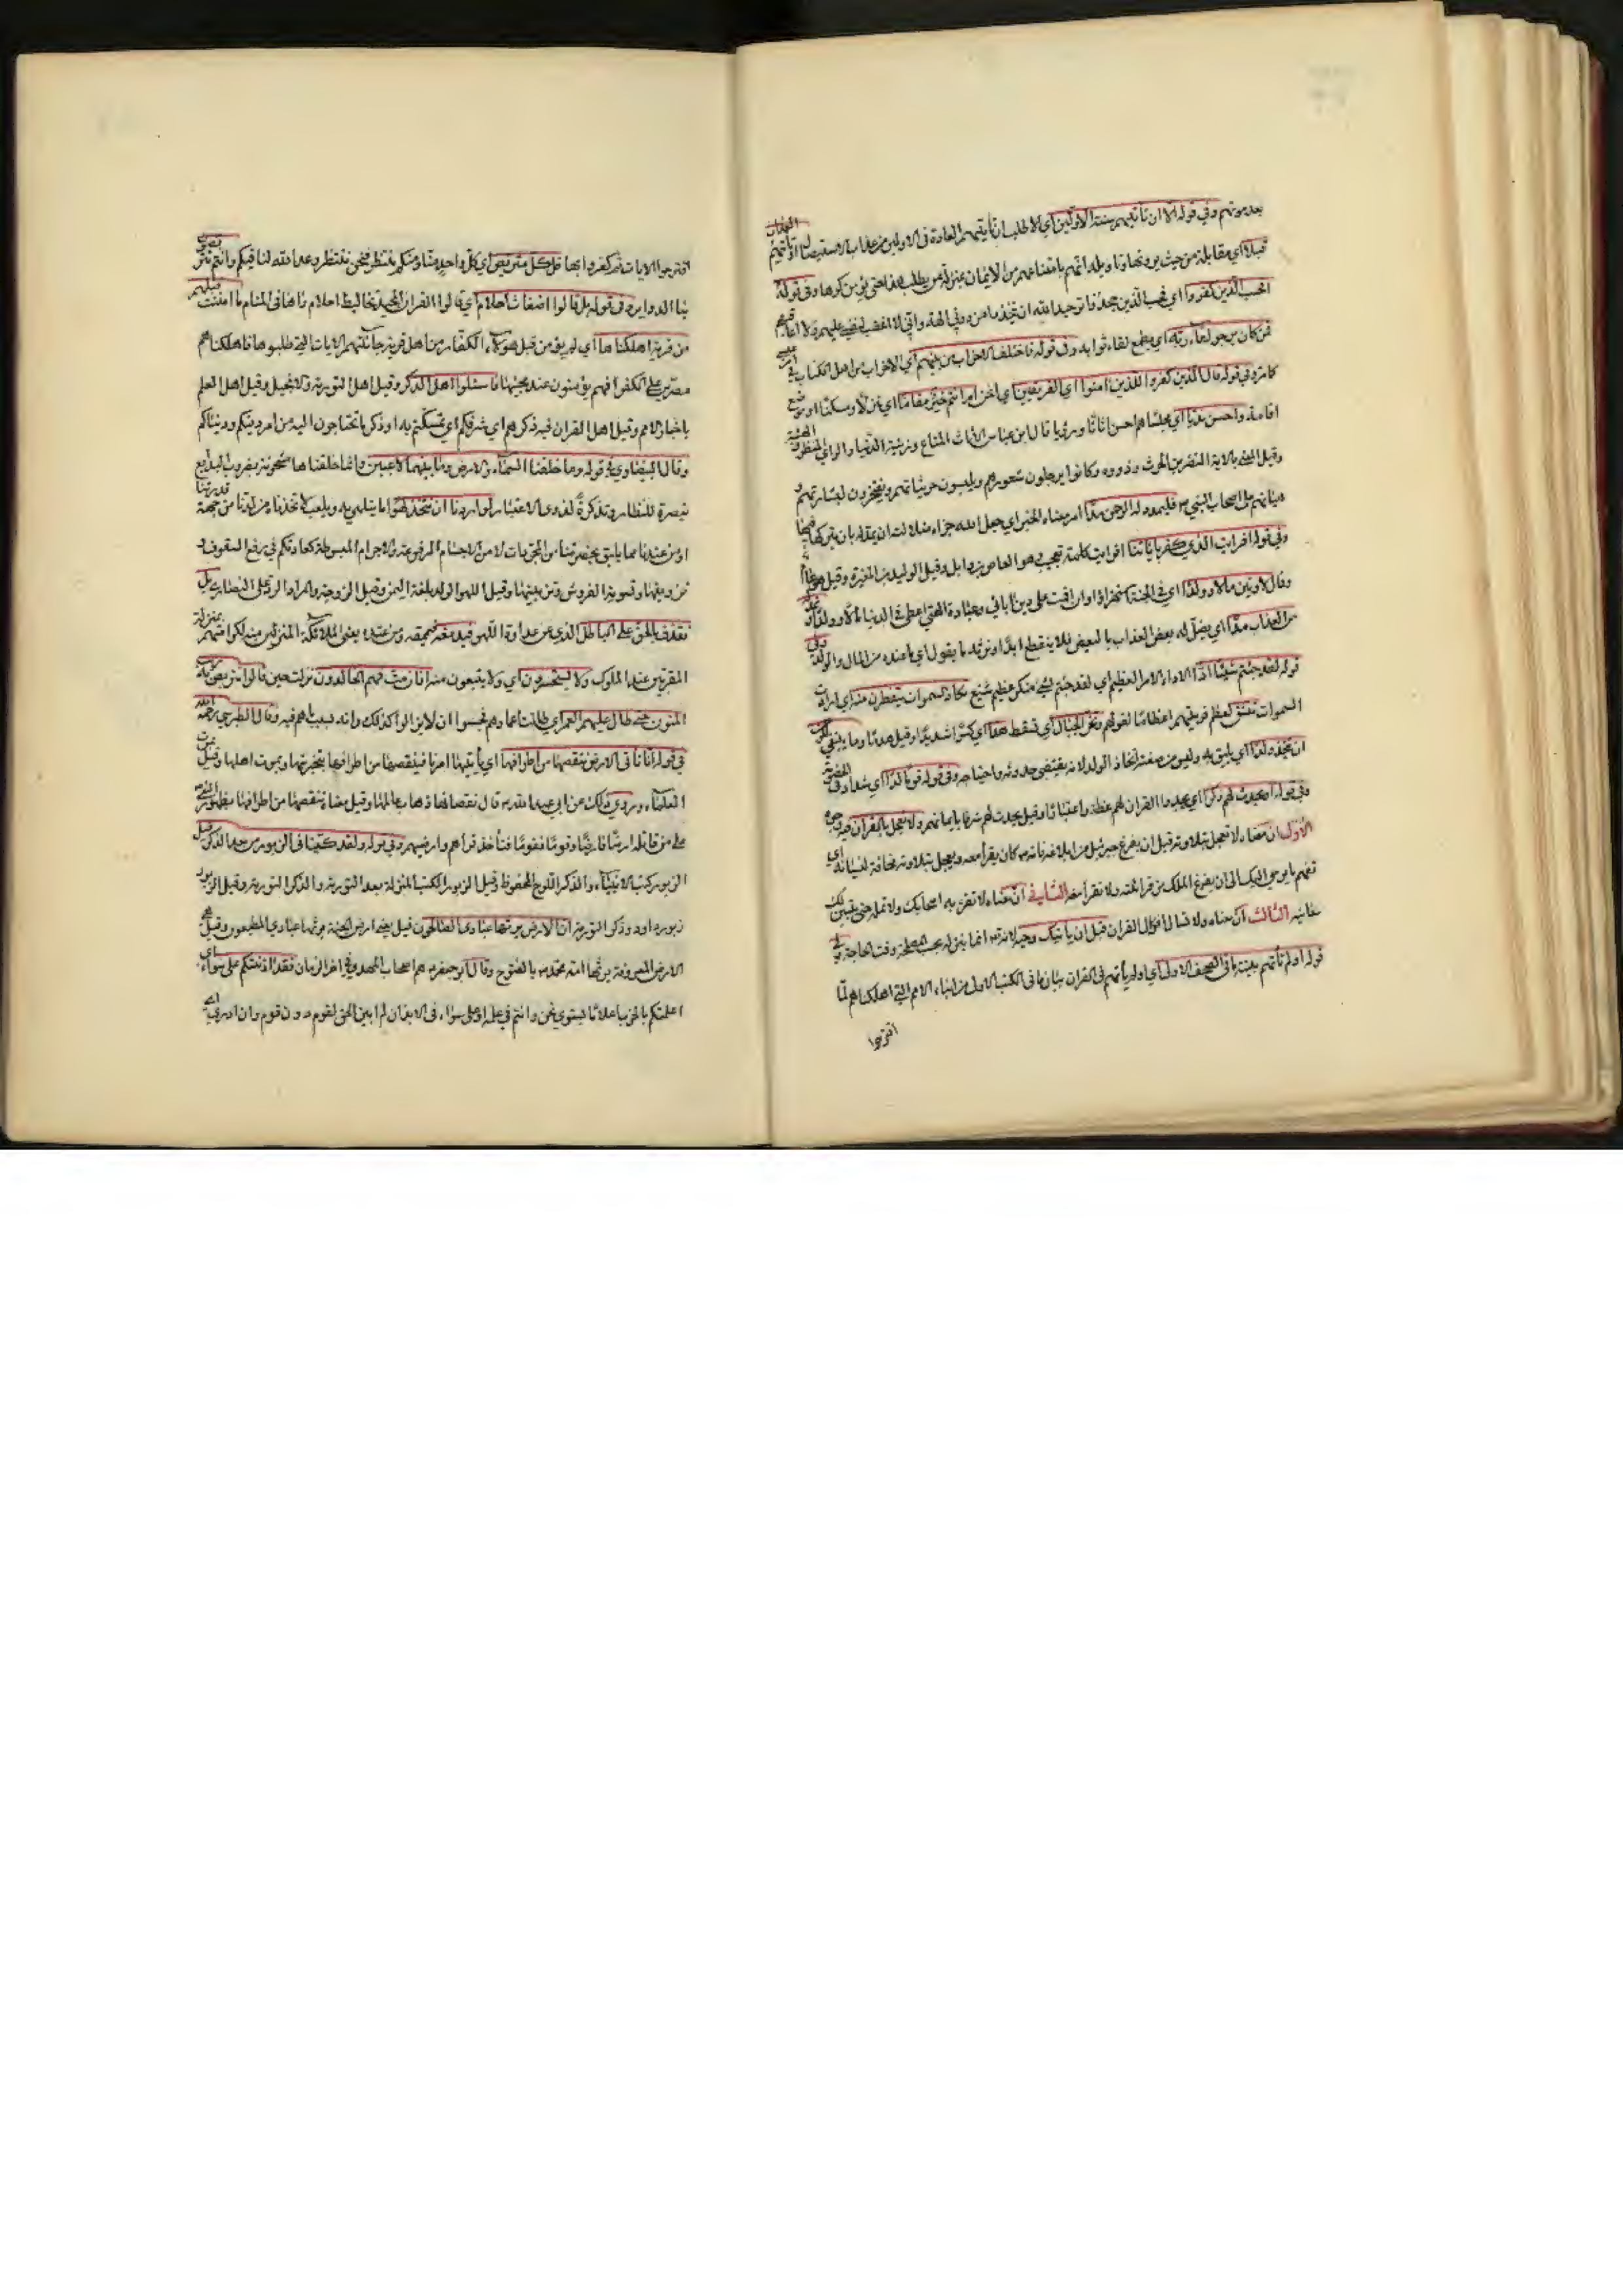 بعد موتهم وفي قوله الا ان تأتيهم سنة الاولين اي الا طلب ان تأتيهم العادة في الاولين من عذاب الاستيصال او تأتيهم العذاب
قبلا اي مقابلة من حيث يرونها وتأويله انهم بامتناعهم من الايمان بمنزلة من يطلب هذا حتى يؤمن كرها وفي قوله
افحسب الذين كفروا اي افحسب الذين جحدوا توحيد الله ان يتخذوا من دوني الهة واني لا اغضب لنفسي عليهم ولا اعاقبهم
فمن كان يرجو لقاء ربه اي يطمع لقاء ثوابه وفي قوله فاختلف الاحزاب من بينهم اي الاحزاب من اهل الكتاب في امر عيسى
كما مر وفي قوله قال الذين كفروا للذين امنوا اي الفريقين اي انحن ام انتم خير مقاما اي منزلا ومسكنا او موضع
اقامة واحسن نديا اي مجلسا هم احسن اثاثا ورؤيا قال ابن عباس الاثاث المتاع وزينة الدنيا والرأي المنظر والهيئة
وقيل المعني بالاية النضر بن الحرث وذووه وكانوا يرجلون شعورهم ويلبسون خز ثيابهم ويفتخرون بشارتهم و
هيأتهم على اصحاب النبي ص فليمدد له الرحمن مدا امر معناه الخبر اي جعل الله جزاء ضلالته ان يمد له بان يتركه فيها
وفي قوله افرايت الذي كفر باياتنا افرايت كلمة تعجيب وهو العاص بن وايل وقيل الوليد بن المغيرة وقيل هو عام
وقال لاوتين مالا وولدا اي في الجنة استهزاؤا او ان اقمت على دين ابائي وعبادة الهتي اعطى في الدنيا مالا وولدا ونمد له
من العذاب مدا اي يصل له بعض العذاب بالبعض فلا ينقطع ابدا ونرثه ما يقول اي ما عنده من المال والولد وفي
قوله لقد جئتم شيئا ادا الاد الامر العظيم اي لقد جئتم بشيء منكر عظيم شنيع تكاد السموات يتفطرن منه اي ارادت
السموات تنشق لعظم فريتهم اعظاما لقولهم وتخر الجبال اي تسقط هدا اي كسرا شديدا وقيل هدما وما ينبغي للرحمن
ان يتخذ ولدا اي يليق به وليس من صفته اتخاذ الولد لانه يقتضي حدوثه واحتياجه وفي قوله قوما لدا اي شدادا في الخصومة
وفي قوله او يحدث لهم ذكرا اي يجدد القران لهم عظة واعتبارا وقيل يحدث لهم شرفا بايمانهم به ولا تعجل بالقران فيه وجوه
الاول ان معناه لا تعجل بتلاوته قبل ان يفرغ جبرئيل من ابلاغه فانه ص كان يقرأ معه ويعجل بتلاوته مخافة نسيانه اي
تفهم ما يوحى اليك الى ان يفرغ الملك من قرائته ولا تقرأ معه الثاني ان معناه لا تقرئ به اصحابك ولا تمله حتى يتبين لك
معانيه الثالث ان معناه ولا تسأل انزال القران قبل ان يأتيك وحيه لانه تع انما ينزله بحسب المصلحة وقت الحاجة وفي
قوله اولم تأتهم بينة ما في الصحف الاولى اي اولم يأتهم في القران بيان ما في الكتب الاولى من انباء الامم التي اهلكناهم لما
اقترحوا
اقترحوا الايات ثم كفروا بها قل كل متربص اي كل واحد منا ومنكم منتظر فنحن ننتظر وعد الله لنا فيكم وانتم تتربصون
بنا الدواير وفي قوله بل قالوا اضغاث احلام اي قالوا القران المجيد تخاليط احلام راها في المنام ما امنت قبلهم
من قرية اهلكناها اي لم يؤمن قبل هؤلاء الكفار من اهل قرية جاءتهم الايات التي طلبوها فاهلكناهم
مصرين على الكفر افهم يؤمنون عند مجيئها فاسئلوا اهل الذكر وقيل اهل التورية والانجيل وقيل اهل العلم
باخبار الامم وقيل اهل القران فيه ذكركم اي شرفكم اي تمسكتم به او ذكر ما تحتاجون اليه من امر دينكم ودنياكم
وقال البيضاوي في قوله وما خلقنا السماء والارض وما بينهما لاعبين وانما خلقناها مشحونة بضروب البدايع
تبصرة للنظار وتذكرة لذوي الاعتبار لو اردنا ان نتخذ لهوا ما يتلهى به ويلعب لاتخذناه من لدنا من جهة قدرتنا
او من عندنا مما يليق بحضرتنا من المجردات لا من الاجسام المرفوعة والاجرام المبسوطة كعادتكم في رفع السقوف و
تزويقها وتسوية الفروش وتزيينها وقيل اللهو الولد بلغة اليمن وقيل الزوجة والمراد الرد على النصارى بل
نقذف بالحق على الباطل الذي من عداده اللهو فيدمغه فيمحقه ومن عنده يعني الملائكة المنزلين منه لكرامتهم بمنزلة
المقربين عند الملوك ولا يستحسرون اي ولا يتعبون منه افان مت فهم الخالدون نزلت حين قالوا نتربص به ريب
المنون حتى طال عليهم العمر اي طالت اعمارهم فحسبوا ان لا يزالوا كذلك وانه بسبب ما هم فيه وقال الطبرسي رحمه الله
في قوله انا نأتي الارض ننقصها من اطرافها اي يأتيها امرنا فينقصها من اطرافها بتخريبها وبموت اهلها وقيل بموت
العلماء وروي ذلك عن ابي عبد الله ع قال نقصانها ذهاب عالمها وقيل معناه ننقصها من اطرافها بظهور النبي
على من قاتله ارضا فارضا وقوما فقوما فتأخذ قراهم وارضيهم وفي قوله ولقد كتبنا في الزبور من بعد الذكر قيل
الزبور كتب الانبياء والذكر اللوح المحفوظ وقيل الزبور الكتب المنزلة بعد التورية والذكر التورية وقيل الزبور
زبور داود والذكر التورية ان الارض يرثها عبادي الصالحون قيل يعني ارض الجنة يرثها عبادي المطيعون وقيل هي
الارض المعروفة يرثها امة محمد ص بالفتوح وقال ابو جعفر ع هم اصحاب المهدي في اخر الزمان فقل اذنتكم على سواء اي
اعلمتكم بالحرب اعلاما يستوي نحن وانتم في علمه او على سواء في الايذان لم ابين الحق لقوم دون قوم وان ادري اي